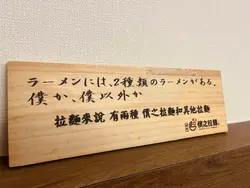 ラーメンには、2種類のラーメンがある。
僕か、僕以外か
拉麵來說 有兩種 僕之拉麵和其他拉麵
僕之拉麵。